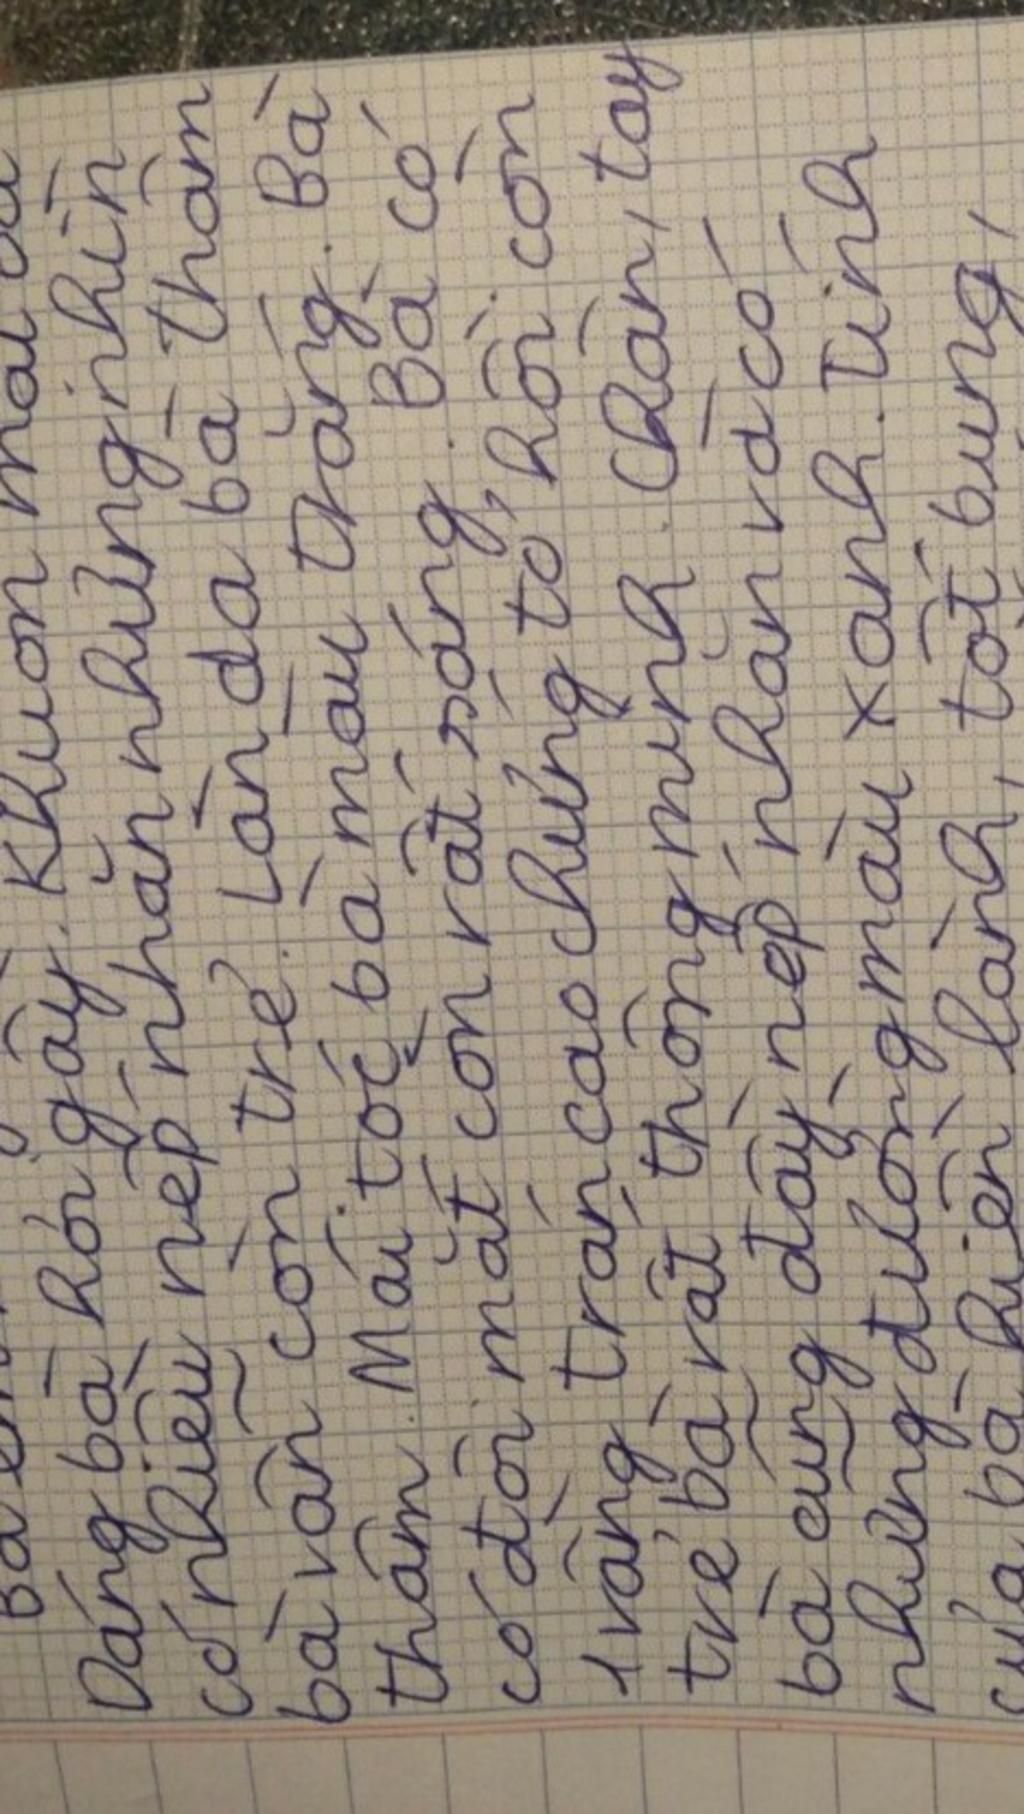 Dáng bà hơi gầy. Khuôn mặt bà
có nhiều nếp nhăn nhưng nhìn
bà vẫn còn trẻ. Làn da bà thâm
thâm. Mái tóc bà màu trắng. Bà
có đôi mắt còn rất sáng. Bà có
1 vầng trán cao chứng tỏ, hồi còn
trẻ bà rất thông minh. Chân, tay
bà cũng đầy nếp nhăn và có
những đường màu xanh. Tính
của bà hiền lành, tốt bụng,